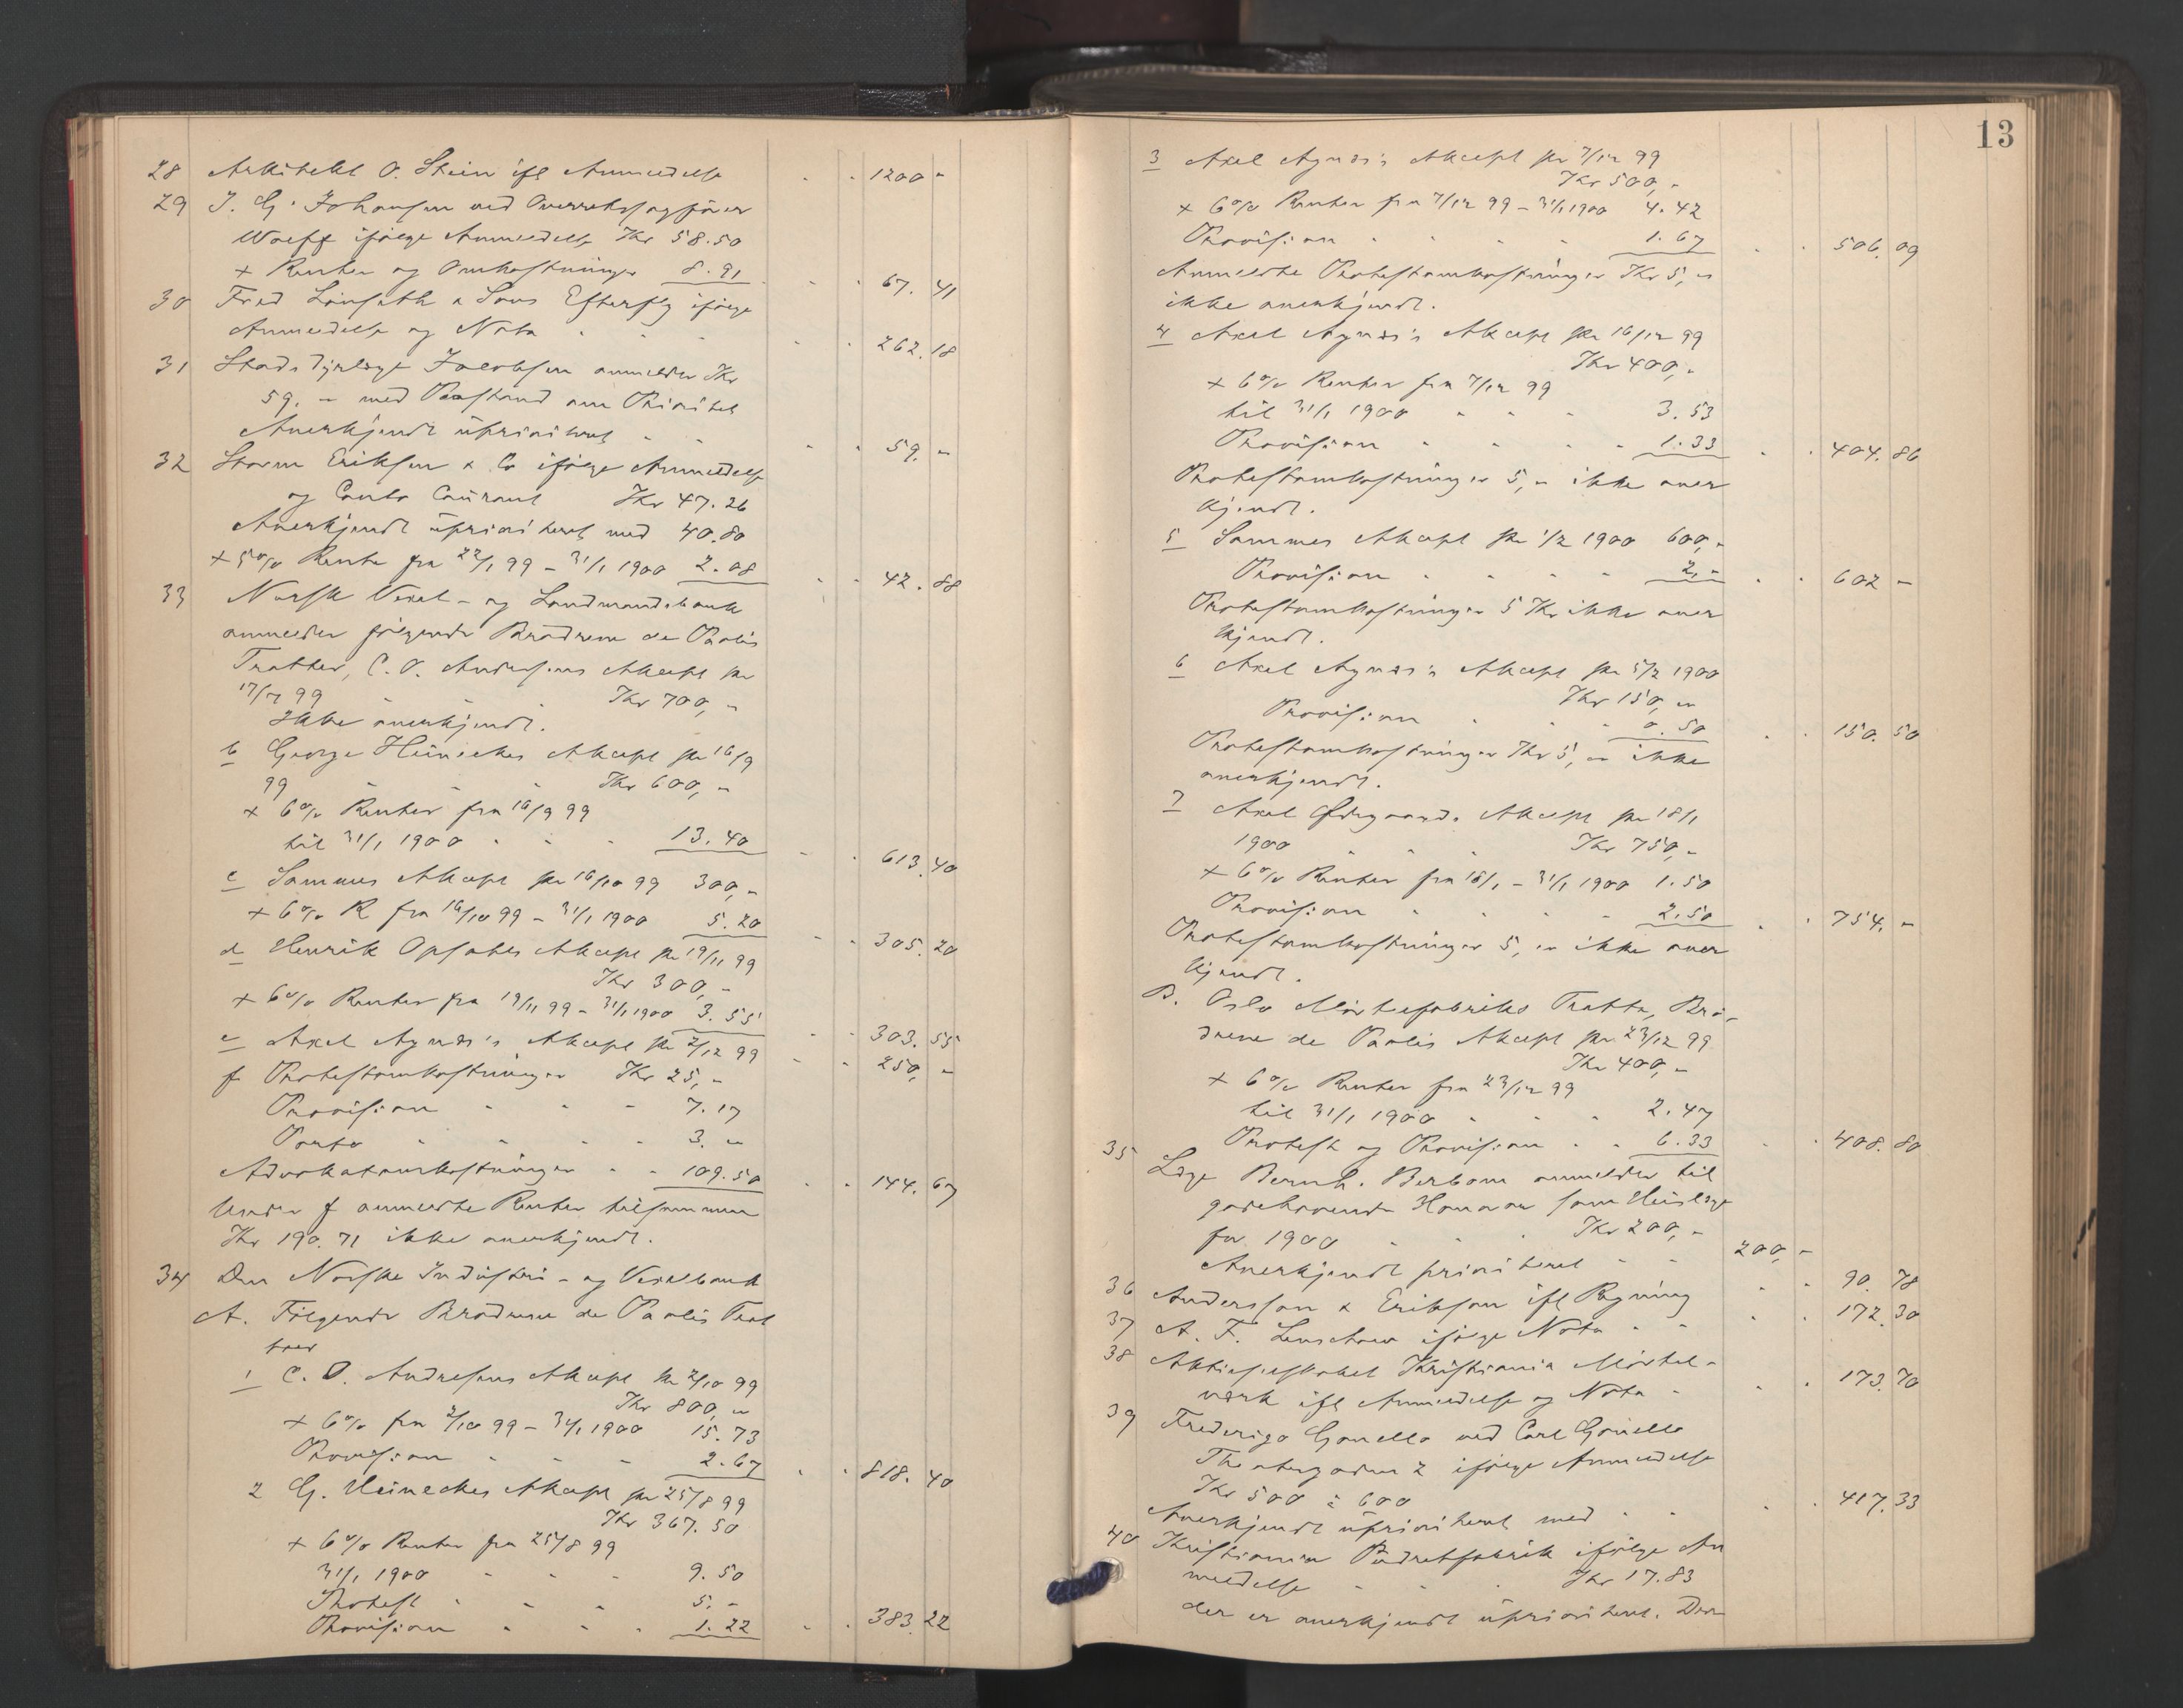 28 Arkitekt O. Stein ifl Anmeldelse " " 1200 "
29 J. G. Johansen ved Overretssagfører
Wolff ifølge Anmeldelse Kr 58.50
+ Renter og Omkostninger 8.91 " " 67.41
30 Fred Lönseth & Søns Efterflg ifølge
Anmeldelse og Nota " " " " 262.18
31 Stadsdyrlæge Jacobsen anmelder Kr
59. " med Paastand om Prioritet
Anerkjendt uprioritert " " " " 59. "
32 Storm Eriksen & Co ifølge Anmeldelse
og Conto Courant Kr 47.26
Anerkjendt uprioritert med 40.80
+ 5% Rente fra 22/1 99 - 31/1 1900 2.08 " " 42.88
33 Norsk Vexel- og Landmandsbank
anmelder følgende Brødrene de Paolis
Tratter, C. O. Andersens Akcept pr
17/7 99 " " Kr 700, "
Ikke anerkjendt.
b George Heinickes Akcept pr 16/9
99 " " " Kr 600, "
+ 6% Renter fra 16/9 99
til 31/1 1900 " " " 13.40 " " 613.40
c Sammes Akcept pr 16/10 99 300, "
+ 6% R fra 16/10 99 - 31/1 1900 5.20 " " 305.20
d Henrik Opsahls Akcept pr 19/11 99
Kr 300, "
+ 6% Renter fra 19/11 99 - 31/1 1900 3.55 " " 303.55
e Axel Agnæs's Akcept pr 2/12 99 " " 250, "
f Protestomkostninger Kr 25, "
Provision " " " 7.17
Porto " " " " 3. "
Advokatomkostninger " " 109.50 " " 144.67
Under f anmeldte Renter tilsammen
Kr 190.71 ikke anerkjendt.
34 Den Norske Industri- og Vexelbank
A. Følgende Brødrene de Paolis Trat
ter
1 C. O. Andresens Akcept pr 2/10 99
Kr 800, "
+ 6% fra 2/10 99 - 31/1 1900 15.73
Provision " " " 2.67 " " 818.40
2 G. Heineckes Akcept pr 25/8 99
Kr 367.50
+ 6% Renter fra 25/8 99
31/1 1900 " " " 9.50
Protest " " " 5. "
Provision " " " 1.22 " " 383.22
13
3 Axel Agnæs's Akcept pr 7/12 99
Kr 500, "
+ 6% Renter fra 7/12 99 - 31/1 1900 4.42
Provision " " " " 1.67 " " 506.09
Anmeldte Protestomkostninger Kr 5, "
ikke anerkjendt.
4 Axel Agnæs's Akcept pr 16/12 99
Kr 400, "
+ 6% Renter fra 7/12 99
til 31/1 1900 " " " 3.53
Provision " " " " 1.33 " " 404.86
Protestomkostninger 5, " ikke aner
kjendt.
5 Sammes Akcept pr 1/2 1900 600, "
Provision " " " " 2, " " " 602 "
Protestomkostninger 5 Kr ikke aner
kjendt.
6 Axel Agnæs's Akcept pr 5/2 1900
Kr 150, "
Provision " " " 0.50 " " 150.50
Protestomkostninger Kr 5, " ikke
anerkjendt.
7 Axel Ødegaards Akcept pr 18/1
1900 " " " Kr 750, "
+ 6% Renter fra 18/1 - 31/1 1900 1.50
Provision " " " " 2.50 " " 754. "
Protestomkostninger 5, " ikke aner
kjendt.
B. Oslo Mørtelfabriks Tratte, Brø-
drene de Paolis Akcept pr. 23/12 99
Kr 400, "
+ 6% Renter fra 23/12 99
til 31/1 1900 " " " 2.47
Protest og Provision " " 6.33 " " 408.80
35 Læge Bernh. Berbom anmelder til
godehavende Honorar som Huslæge
for 1900 " " " Kr 200, "
Anerkjendt prioriteret " " 200, "
36 Andersson & Erikson ifl Regning " " 90.78
37 A. F. Lenschow ifølge Nota " " " " 172.30
38 Aktieselskabet Kristiania Mørtel-
værk ifl Anmeldelse og Nota " " " 173.70
39 Frederigo Gonella ved Carl Gonella
Theatergaden 2 ifølge Anmeldelse
Kr 500 à 600
Anerkjendt uprioriteret med " " " " 417.33
40 Kristiania Pudretfabrik ifølge An
meldelse " " " Kr 17.83
der er anerkjendt uprioriteret. Den